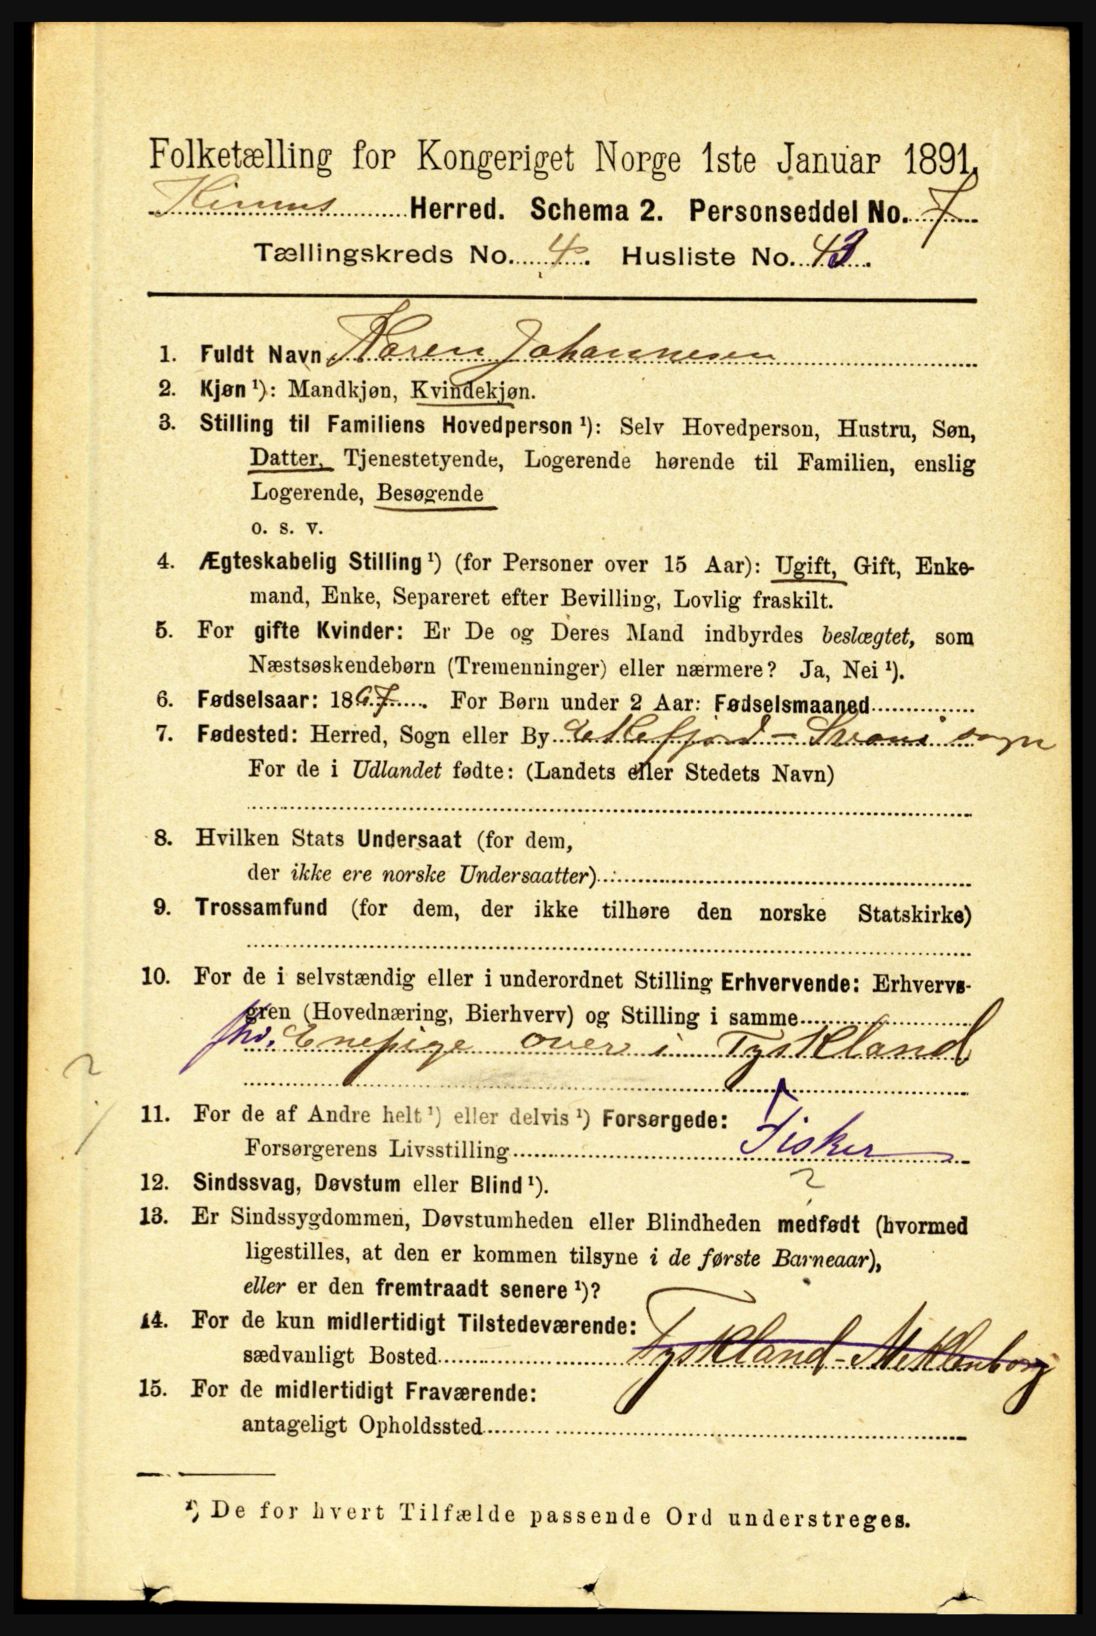 Folketælling for Kongeriget Norge 1ste Januar 1891.
Kinns Herred. Schema 2. Personseddel No. 7
Tællingskreds No. 4. Husliste No. 43.
1. Fuldt Navn Karen Johannesen
2. Kjøn ¹): Mandkjøn, Kvindekjøn.
3. Stilling til Familiens Hovedperson ¹): Selv Hovedperson, Hustru, Søn,
Datter, Tjenestetyende, Logerende hørende til Familien, enslig
Logerende, Besøgende
o. s. v.
4. Ægteskabelig Stilling ¹) (for Personer over 15 Aar): Ugift, Gift, Enke-
mand, Enke, Separeret efter Bevilling, Lovlig fraskilt.
5. For gifte Kvinder: Er De og Deres Mand indbyrdes beslægtet, som
Næstsøskendebørn (Tremenninger) eller nærmere? Ja, Nei ¹).
6. Fødselsaar: 1867. For Børn under 2 Aar: Fødselsmaaned
7. Fødested: Herred, Sogn eller By Eikefjord - sogn
For de i Udlandet fødte: (Landets eller Stedets Navn)
8. Hvilken Stats Undersaat (for dem,
der ikke ere norske Undersaatter)
9. Trossamfund (for dem, der ikke tilhøre den norske Statskirke)
10. For de i selvstændig eller i underordnet Stilling Erhvervende: Erhvervs-
gren (Hovednæring, Bierhverv) og Stilling i samme
Enepige over i Tyskland
?
11. For de af Andre helt ¹) eller delvis ¹) Forsørgede:
Forsørgerens Livsstilling Fisker
?
12. Sindssvag, Døvstum eller Blind ¹).
13. Er Sindssygdommen, Døvstumheden eller Blindheden medfødt (hvormed
ligestilles, at den er kommen tilsyne i de første Barneaar),
eller er den fremtraadt senere ¹)?
14. For de kun midlertidigt Tilstedeværende:
sædvanligt Bosted Tyskland - Meklenborg
15. For de midlertidigt Fraværende:
antageligt Opholdssted
¹) De for hvert Tilfælde passende Ord understreges.